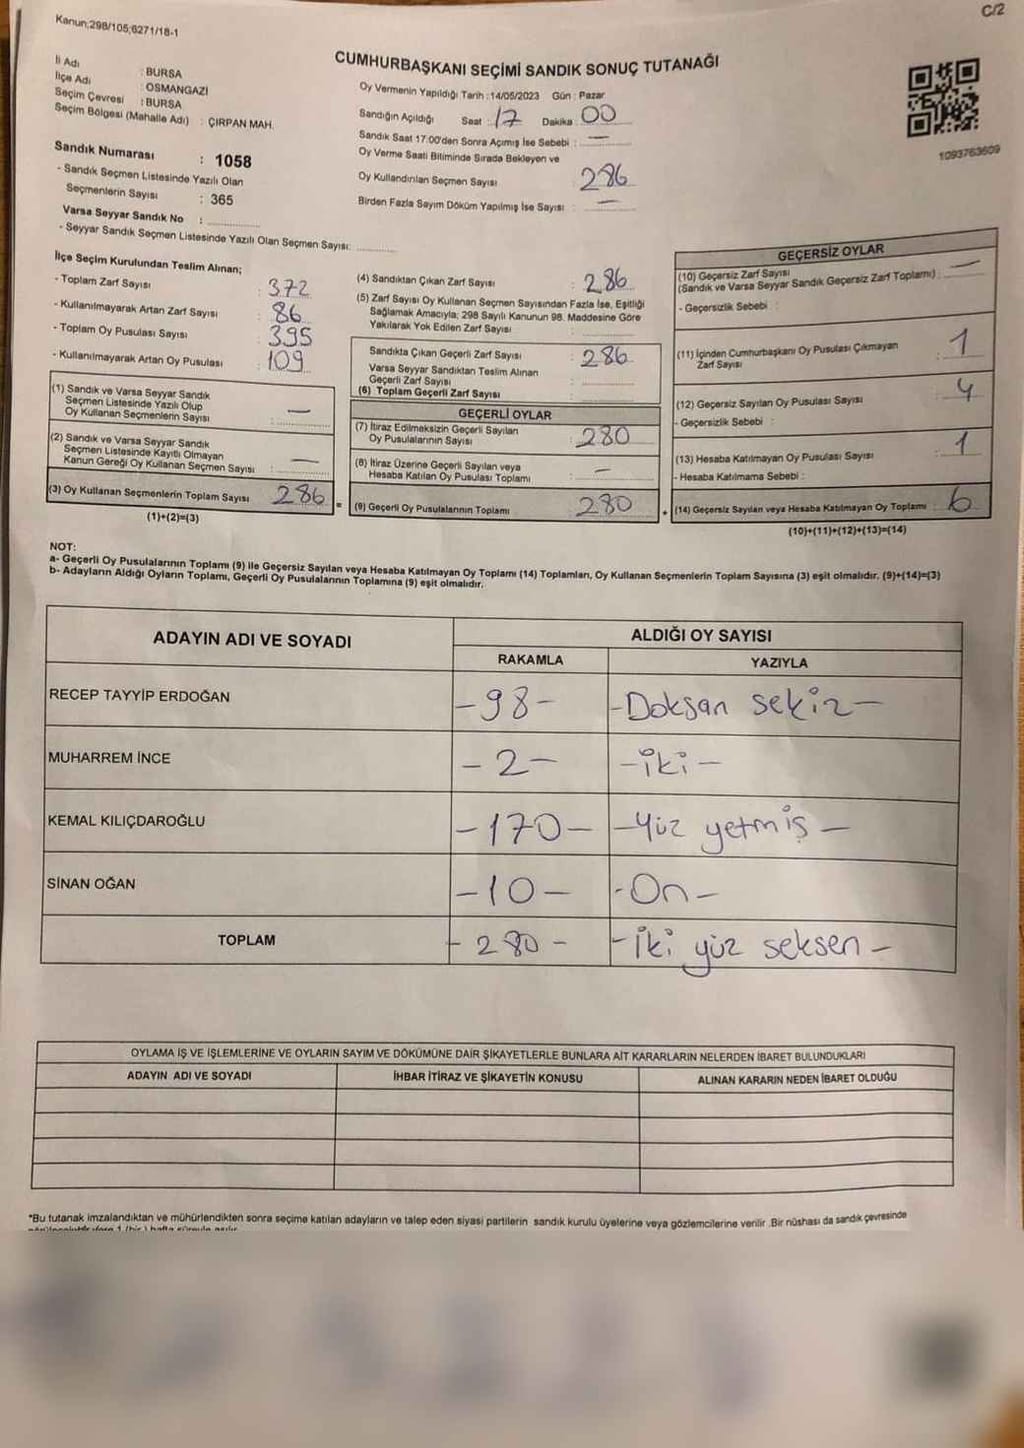 C/2
Kanun;298/105;6271/18-1
İl Adı : BURSA
İlçe Adı : OSMANGAZİ
Seçim Çevresi : BURSA
Seçim Bölgesi (Mahalle Adı) : ÇIRPAN MAH.
Sandık Numarası : 1058
- Sandık Seçmen Listesinde Yazılı Olan
Seçmenlerin Sayısı : 365
Varsa Seyyar Sandık No :
- Seyyar Sandık Seçmen Listesinde Yazılı Olan Seçmen Sayısı:
CUMHURBAŞKANI SEÇİMİ SANDIK SONUÇ TUTANAĞI
Oy Vermenin Yapıldığı Tarih : 14/05/2023 Gün : Pazar
Sandığın Açıldığı Saat : 17 Dakika : 00
Sandık Saat 17:00'den Sonra Açımış İse Sebebi : —
Oy Verme Saati Bitiminde Sırada Bekleyen ve
Oy Kullandırılan Seçmen Sayısı 286
Birden Fazla Sayım Döküm Yapılmış İse Sayısı : —
1093763609
İlçe Seçim Kurulundan Teslim Alınan;
- Toplam Zarf Sayısı : 372
- Kullanılmayarak Artan Zarf Sayısı : 86
- Toplam Oy Pusulası Sayısı : 395
- Kullanılmayarak Artan Oy Pusulası : 109
(1) Sandık ve Varsa Seyyar Sandık
Seçmen Listesinde Yazılı Olup
Oy Kullanan Seçmenlerin Sayısı : —
(2) Sandık ve Varsa Seyyar Sandık
Seçmen Listesinde Kayıtlı Olmayan
Kanun Gereği Oy Kullanan Seçmen Sayısı : —
(3) Oy Kullanan Seçmenlerin Toplam Sayısı 286
(1)+(2)=(3)
(4) Sandıktan Çıkan Zarf Sayısı : 286
(5) Zarf Sayısı Oy Kullanan Seçmen Sayısından Fazla İse, Eşitliği
Sağlamak Amacıyla; 298 Sayılı Kanunun 98. Maddesine Göre
Yakılarak Yok Edilen Zarf Sayısı :
Sandıkta Çıkan Geçerli Zarf Sayısı : 286
Varsa Seyyar Sandıktan Teslim Alınan
Geçerli Zarf Sayısı :
(6) Toplam Geçerli Zarf Sayısı
GEÇERLİ OYLAR
(7) İtiraz Edilmeksizin Geçerli Sayılan
Oy Pusulalarının Sayısı : 280
(8) İtiraz Üzerine Geçerli Sayılan veya
Hesaba Katılan Oy Pusulası Toplamı : —
= (9) Geçerli Oy Pusulalarının Toplamı 280
GEÇERSİZ OYLAR
(10) Geçersiz Zarf Sayısı
(Sandık ve Varsa Seyyar Sandık Geçersiz Zarf Toplamı) : —
- Geçersizlik Sebebi :
(11) İçinden Cumhurbaşkanı Oy Pusulası Çıkmayan
Zarf Sayısı : 1
(12) Geçersiz Sayılan Oy Pusulası Sayısı : 4
- Geçersizlik Sebebi :
(13) Hesaba Katılmayan Oy Pusulası Sayısı : 1
- Hesaba Katılmama Sebebi :
+ (14) Geçersiz Sayılan veya Hesaba Katılmayan Oy Toplamı : 6
(10)+(11)+(12)+(13)=(14)
NOT:
a- Geçerli Oy Pusulalarının Toplamı (9) ile Geçersiz Sayılan veya Hesaba Katılmayan Oy Toplamı (14) Toplamları, Oy Kullanan Seçmenlerin Toplam Sayısına (3) eşit olmalıdır. (9)+(14)=(3)
b- Adayların Aldığı Oyların Toplamı, Geçerli Oy Pusulalarının Toplamına (9) eşit olmalıdır.
ADAYIN ADI VE SOYADI ALDIĞI OY SAYISI
RAKAMLA YAZIYLA
RECEP TAYYİP ERDOĞAN -98- -Doksan sekiz-
MUHARREM İNCE -2- -iki-
KEMAL KILIÇDAROĞLU -170- -Yüz yetmiş-
SİNAN OĞAN -10- -On-
TOPLAM -280- -İki yüz seksen-
OYLAMA İŞ VE İŞLEMLERİNE VE OYLARIN SAYIM VE DÖKÜMÜNE DAİR ŞİKAYETLERLE BUNLARA AİT KARARLARIN NELERDEN İBARET BULUNDUKLARI
ADAYIN ADI VE SOYADI İHBAR İTİRAZ VE ŞİKAYETİN KONUSU ALINAN KARARIN NEDEN İBARET OLDUĞU
*Bu tutanak imzalandıktan ve mühürlendikten sonra seçime katılan adayların ve talep eden siyasi partilerin sandık kurulu üyelerine veya gözlemcilerine verilir .Bir nüshası da sandık çevresinde